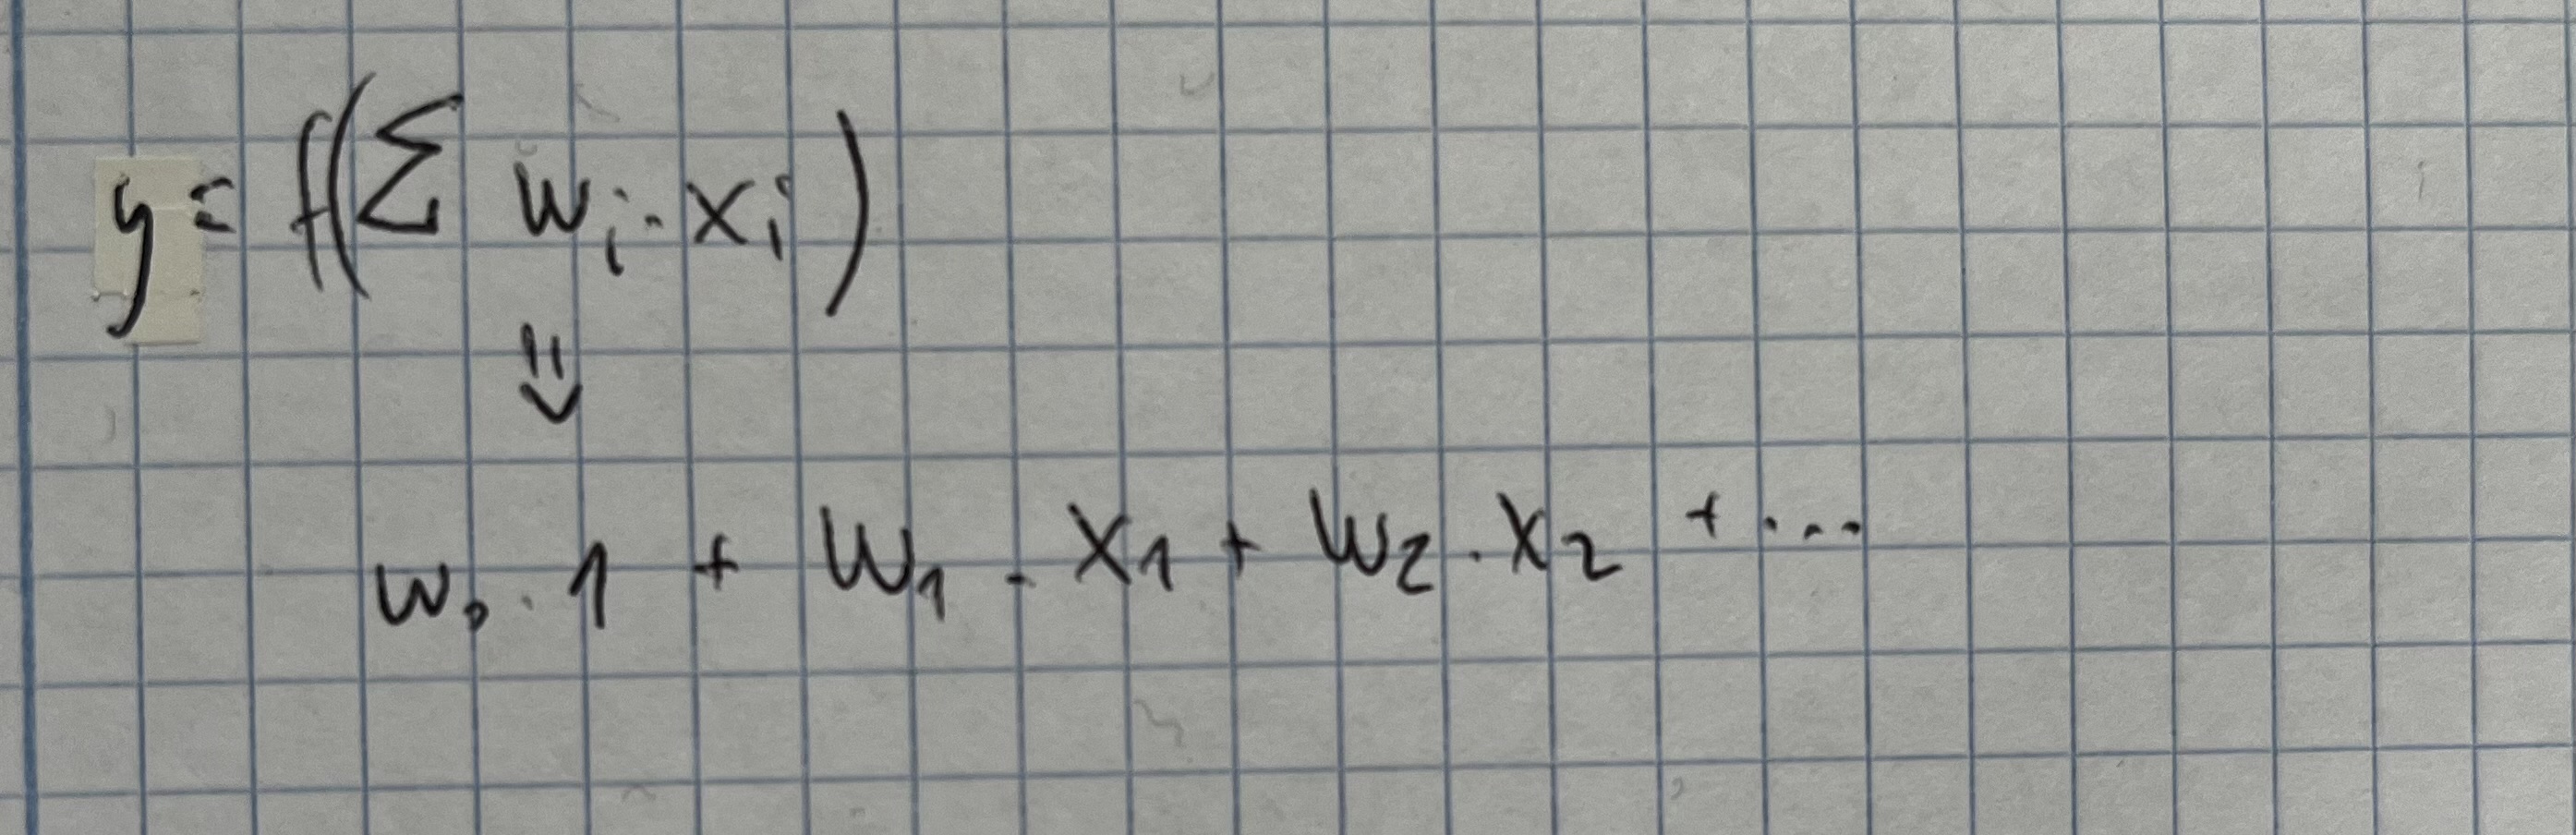 y = f(Σ wᵢ · xᵢ)
⇓
w₀ · 1 + w₁ · x₁ + w₂ · x₂ + ...